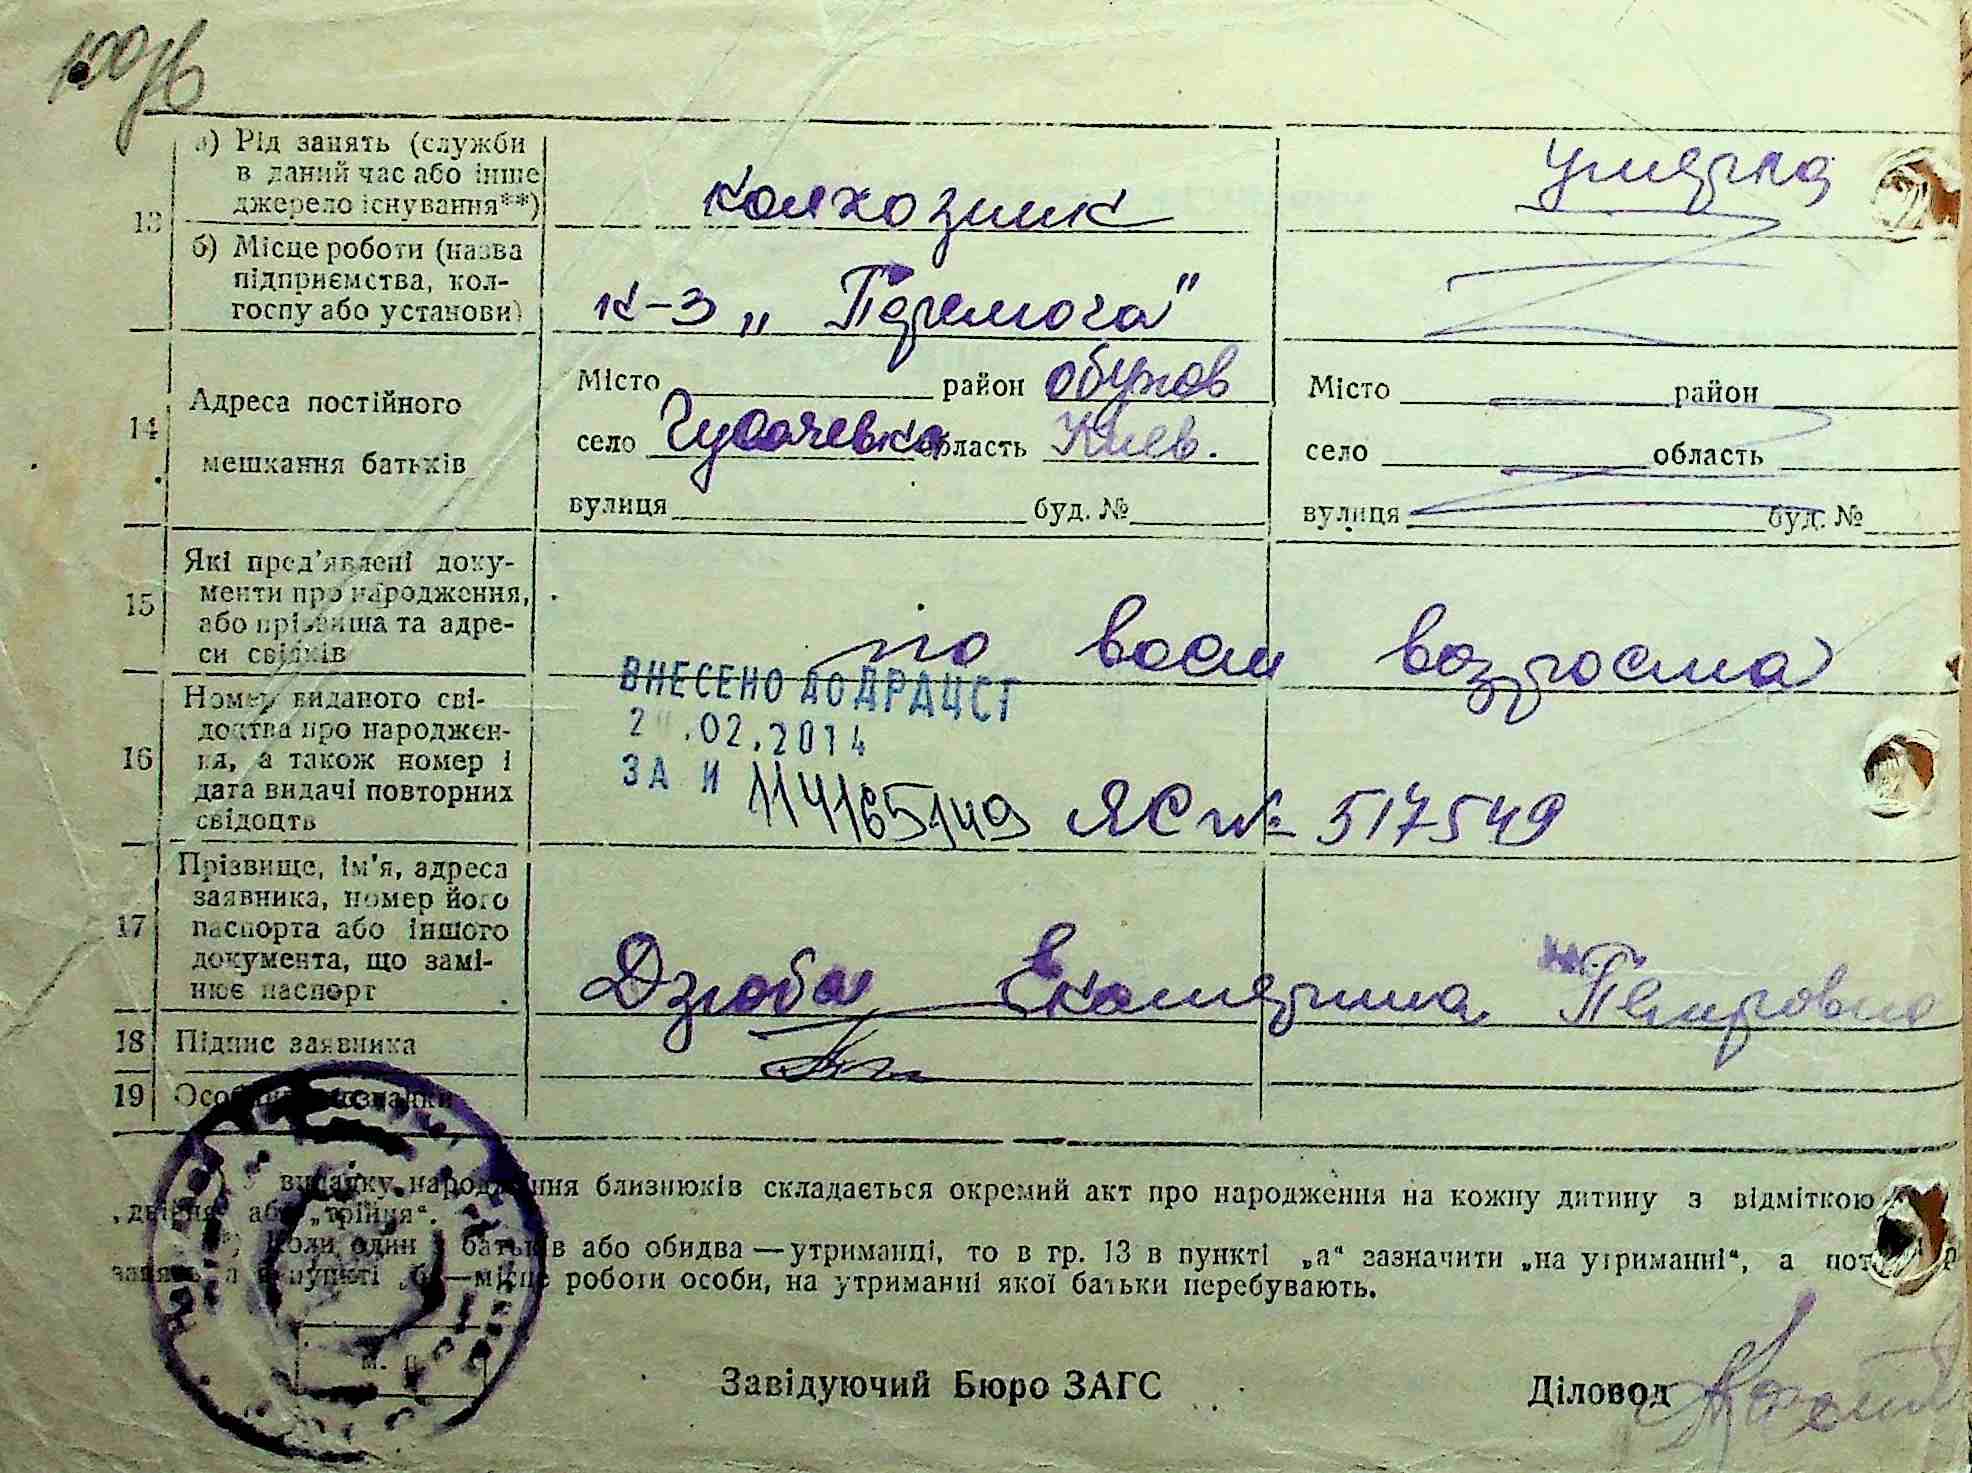 а) Рід занять (служби
в даний час або інше
джерело існування**)
колхозник
умерла
13
б) Місце роботи (назва
підприємства, кол-
госпу або установи)
к-з „Перемога"
14
Адреса постійного
мешкання батьків
Місто район Обухов
село область Киев.
вулиця буд. №
Місто район
село область
вулиця буд. №
15
Які пред'явлені доку-
менти про народження,
або прізвища та адре-
си свідків
по восст возроста
ВНЕСЕНО ДО ДРАЦСГ
2 .02.2014
ЗА И 114165149
16
Номер виданого сві-
доцтва про народжен-
ня, а також номер і
дата видачі повторних
свідоцтв
ЯС № 517549
17
Прізвище, ім'я, адреса
заявника, номер його
паспорта або іншого
документа, що замі-
нює паспорт
Дзюба Екатерина Петровна
18 Підпис заявника
19 Особливі познаки
У випадку народження близнюків складається окремий акт про народження на кожну дитину з відміткою
„двійня" або „трійня".
Коли один з батьків або обидва — утриманці, то в гр. 13 в пункті „а" зазначити „на утриманні", а пот
в пункті „б" — місце роботи особи, на утриманні якої батьки перебувають.
м. п.
Завідуючий Бюро ЗАГС
Діловод